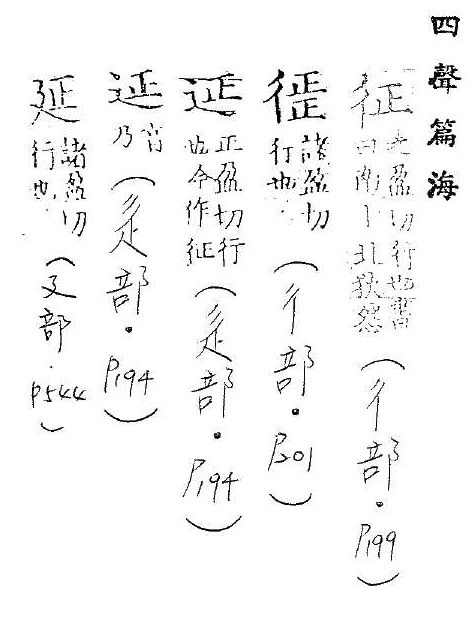 四聲篇海
征
盈切行也書
曰南北狄怨
(彳部.P199)
諸盈切
行也
(彳部.P201)
正盈切行
也今作征
(辵部.P194)
音
乃
(辵部.P194)
諸盈切
行也
(廴部.P544)